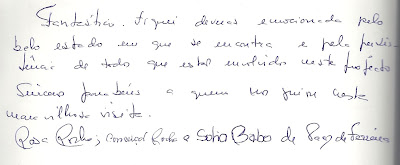 Fantástico. Fiquei deveras emocionada pelo
belo estado em que se encontra e pela persis-
tência de todo que está envolvido neste projecto
Sincero parabéns a quem nos guiou nesta
maravilhosa visita.
Rosa Rocha, Rocha e Sofia Babo de Paços de Ferreira